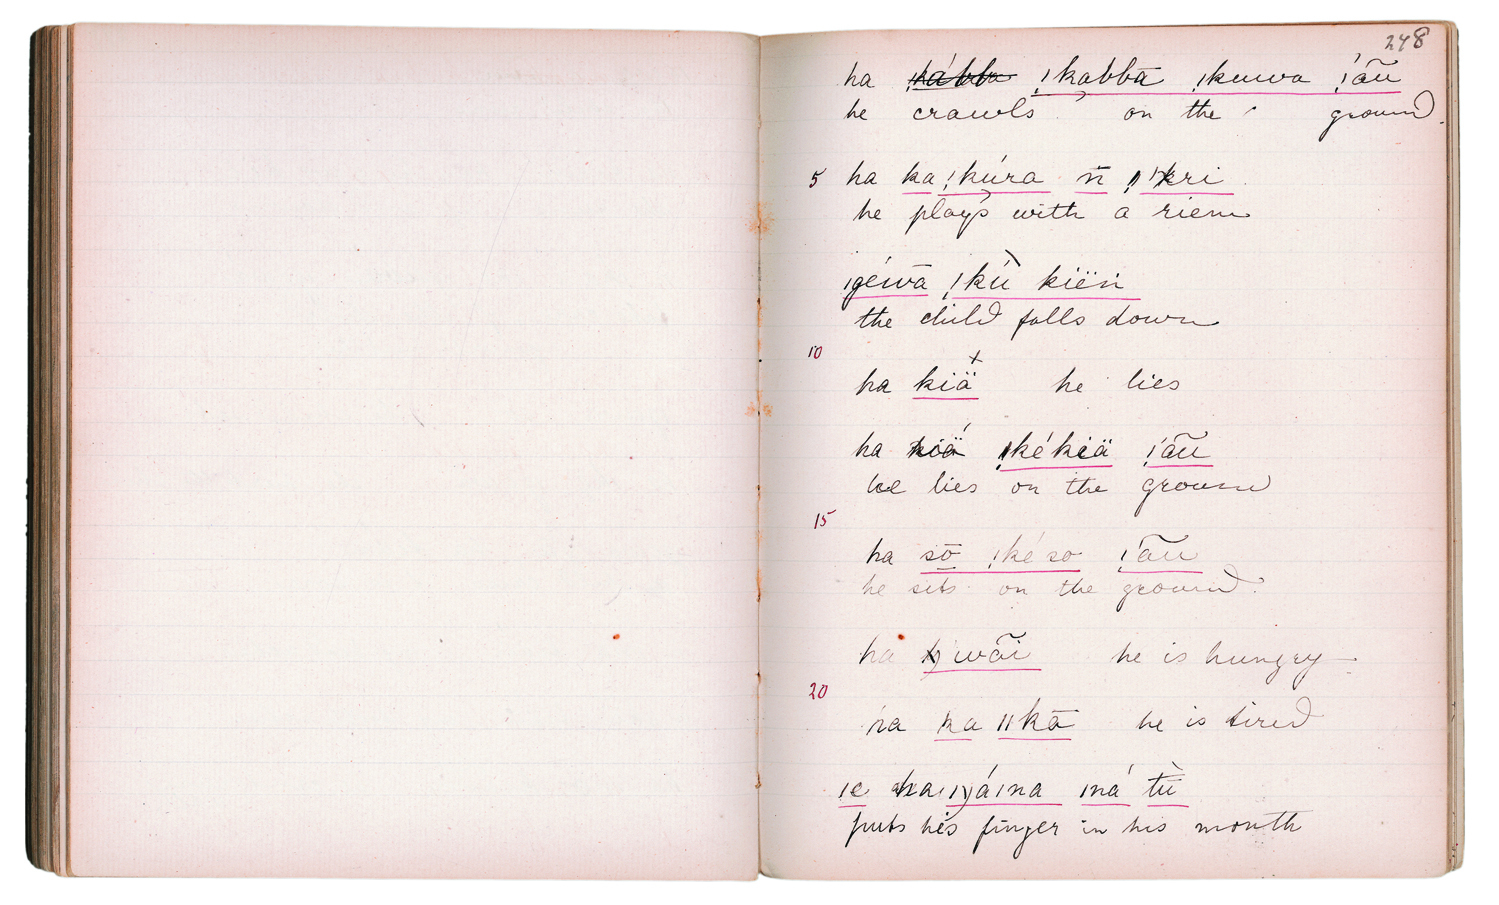 248
ha ǃkabbā ǃkuwa ǃãũ
he crawls on the ground.
5 ha ka ǃkúra n̄ ǁkri
he plays with a riem
ǀgéwā ǃkù kiëń
the child falls down
10
ha kiä he lies
ha kiä ǃkékiä ǃãũ
he lies on the ground
15
ha sō ǀké so ǃãũ
he sits on the ground.
ha wãi he is hungry
20
ha ka ǁkā he is tired
ǀe ha ǀná tū̀
puts his finger in his mouth